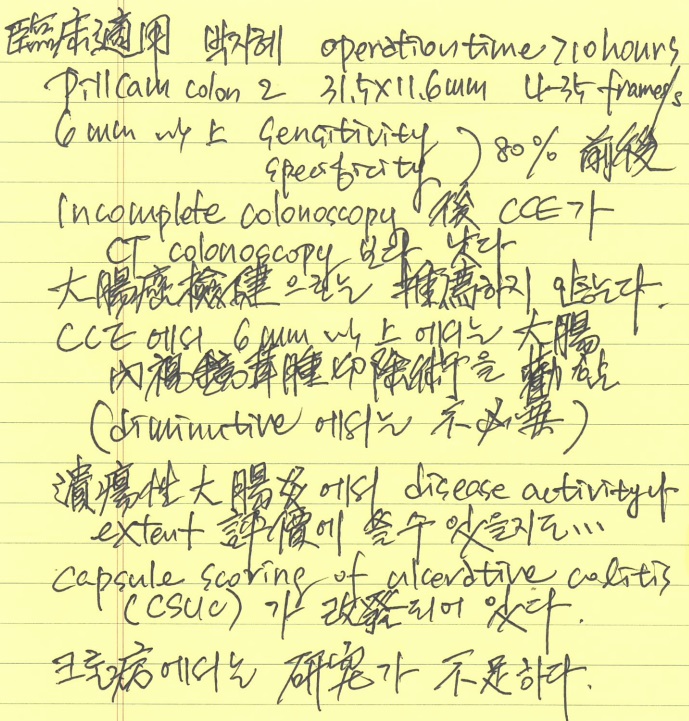 臨床適用 박지혜 operation time >10 hours
PillCam colon 2 31.5×11.6mm 4-35 frame/s
6mm 以上 Sensitivity
specificity ) 80% 前後
Incomplete colonoscopy 後 CCE가
CT colonoscopy 보다 낫다
大腸癌檢鍵으로는 推薦하지 않는다.
CCE에서 6mm 以上에서는 大腸
內視鏡茸腫切除術을 勸
(diminutive에서는 不必要)
潰瘍性大腸炎에서 disease activity나
extent 評價에 쓸수 있을지도…
capsule scoring of ulcerative colitis
(CSUC)가 改發되어 있다.
크론病에서는 研究가 不足하다.